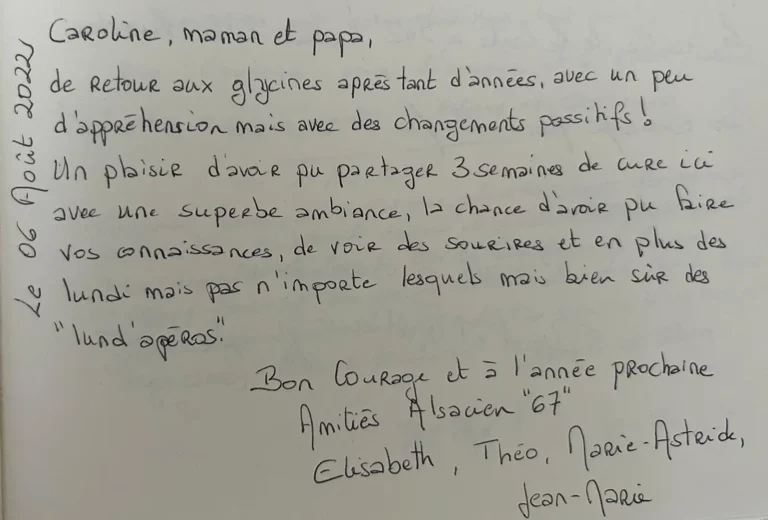 Le 06 Août 2022
Caroline, maman et papa,
de retour aux glycines après tant d'années, avec un peu
d'appréhension mais avec des changements possitifs !
Un plaisir d'avoir pu partager 3 semaines de cure ici
avec une superbe ambiance, la chance d'avoir pu faire
vos connaissances, de voir des sourires et en plus des
lundi mais pas n'importe lesquels mais bien sûr des
"lund'apéros".
Bon Courage et à l'année prochaine
Amitiés Alsacien "67"
Elisabeth, Théo, Marie-Astride,
Jean-Marie